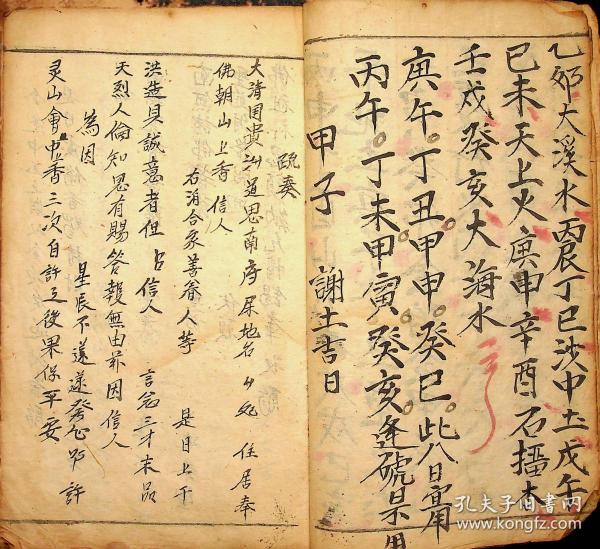 乙夘大溪水丙辰丁巳沙中土戊午
己未天上火庚申辛酉石榴木
壬戌癸亥大海水
庚午丁丑甲申癸巳此八日寅用
丙午丁未甲寅癸亥逢號杲
甲子 謝土吉日
疏奏
大清国貴州道思南府屎地名 住居奉
佛朝山上香信人
右洎合家善眷人等 是日上干
洪造具誠意者但 信人 言念三才末品
天烈人倫知恩有賜答報無由前因信人
為因 星辰不遠遂發心 許
灵山會中上香三次自許之後果保平安
孔夫子旧书网
www.kongfz.com